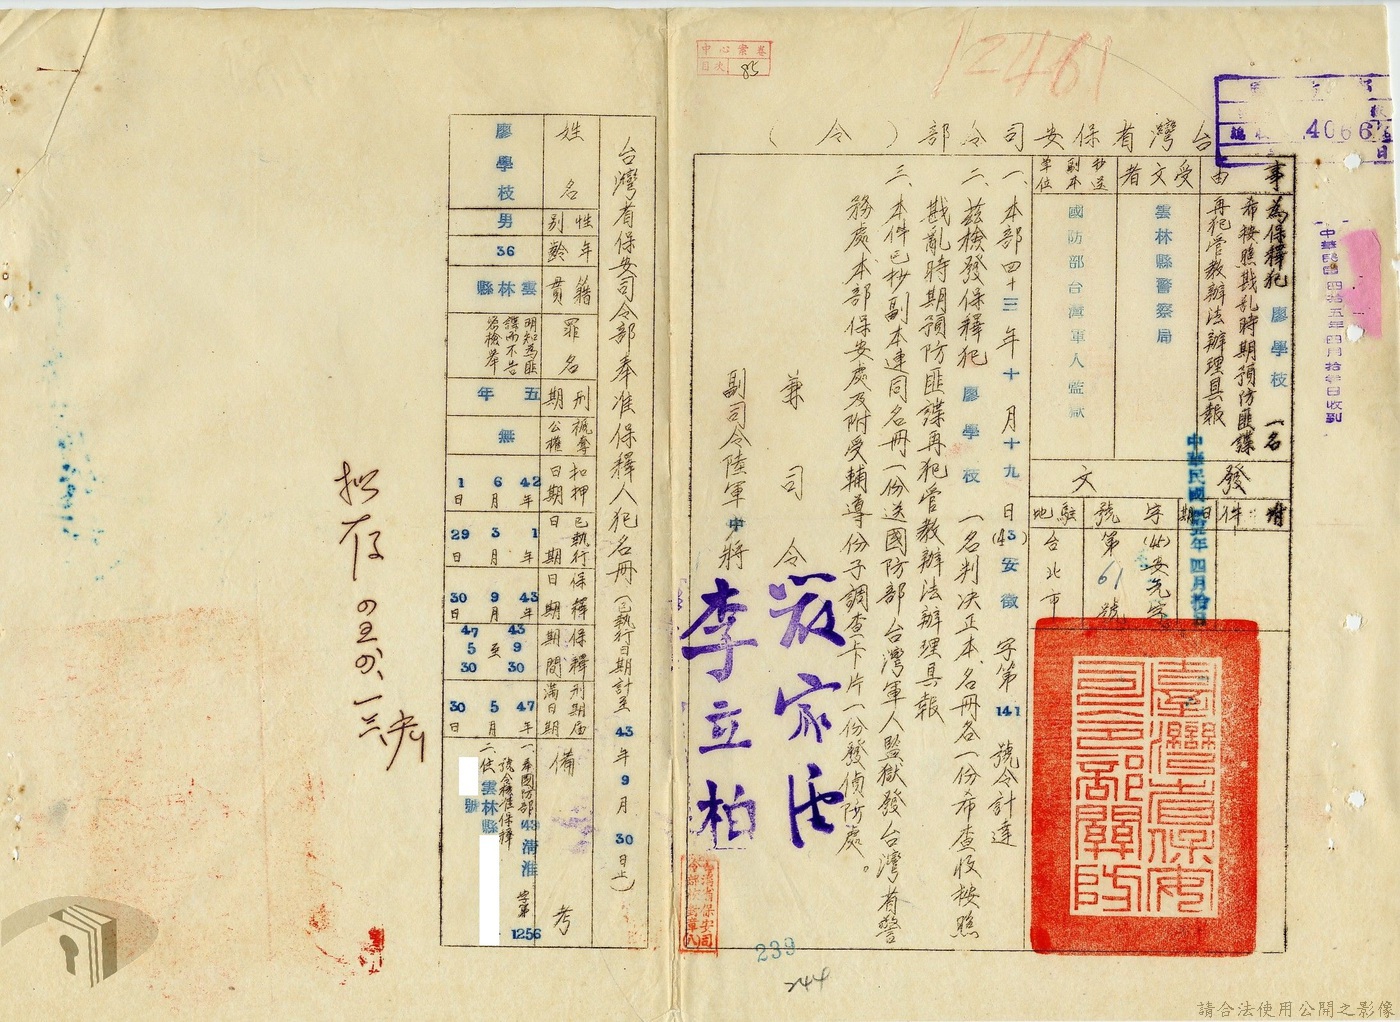 中心案卷
目次 85
12461
4066
台灣省保安司令部（令）
事由
為保釋犯 廖學枝 一名
希按照戡亂時期預防匪諜
再犯管教辦法辦理具報
受文者
雲林縣警察局
抄送副本單位
國防部台灣軍人監獄
發文
附件
日期
中華民國四十五年四月拾日
字號
(45)安元字
第61號
駐地
台北市
中華民國四拾五年四月拾壹日收到
一、本部四十三年十月十九日(43)安徵字第141號令計達
二、茲檢發保釋犯 廖學枝 一名判決正本、名冊各一份希查收按照
戡亂時期預防匪諜再犯管教辦法辦理具報
三、本件已抄副本連同名冊一份送國防部台灣軍人監獄發台灣省警
務處本部保安處及附受輔導份子調查卡片一份發偵防處。
兼司令 嚴家淦
副司令陸軍中將 李立柏
台灣省保安司令部關防
239
244
台灣省保安司令部奉准保釋人犯名冊（已執行日期計至43年9月30日止）
姓名 廖學枝
性別 男
年齡 36
籍貫 雲林縣
罪名 明知為匪諜而不告密檢舉
刑期 五年
褫奪公權 無
扣押日期 42年6月1日
已執行日期 1年3月29日
保釋日期 43年9月30日
保釋期間 43 9 30至47 5 30
刑期屆滿日期 47年5月30日
備考
一、奉國防部43清准字第1256號令核准保釋
二、住雲林縣
號
擬存
請合法使用公開之影像